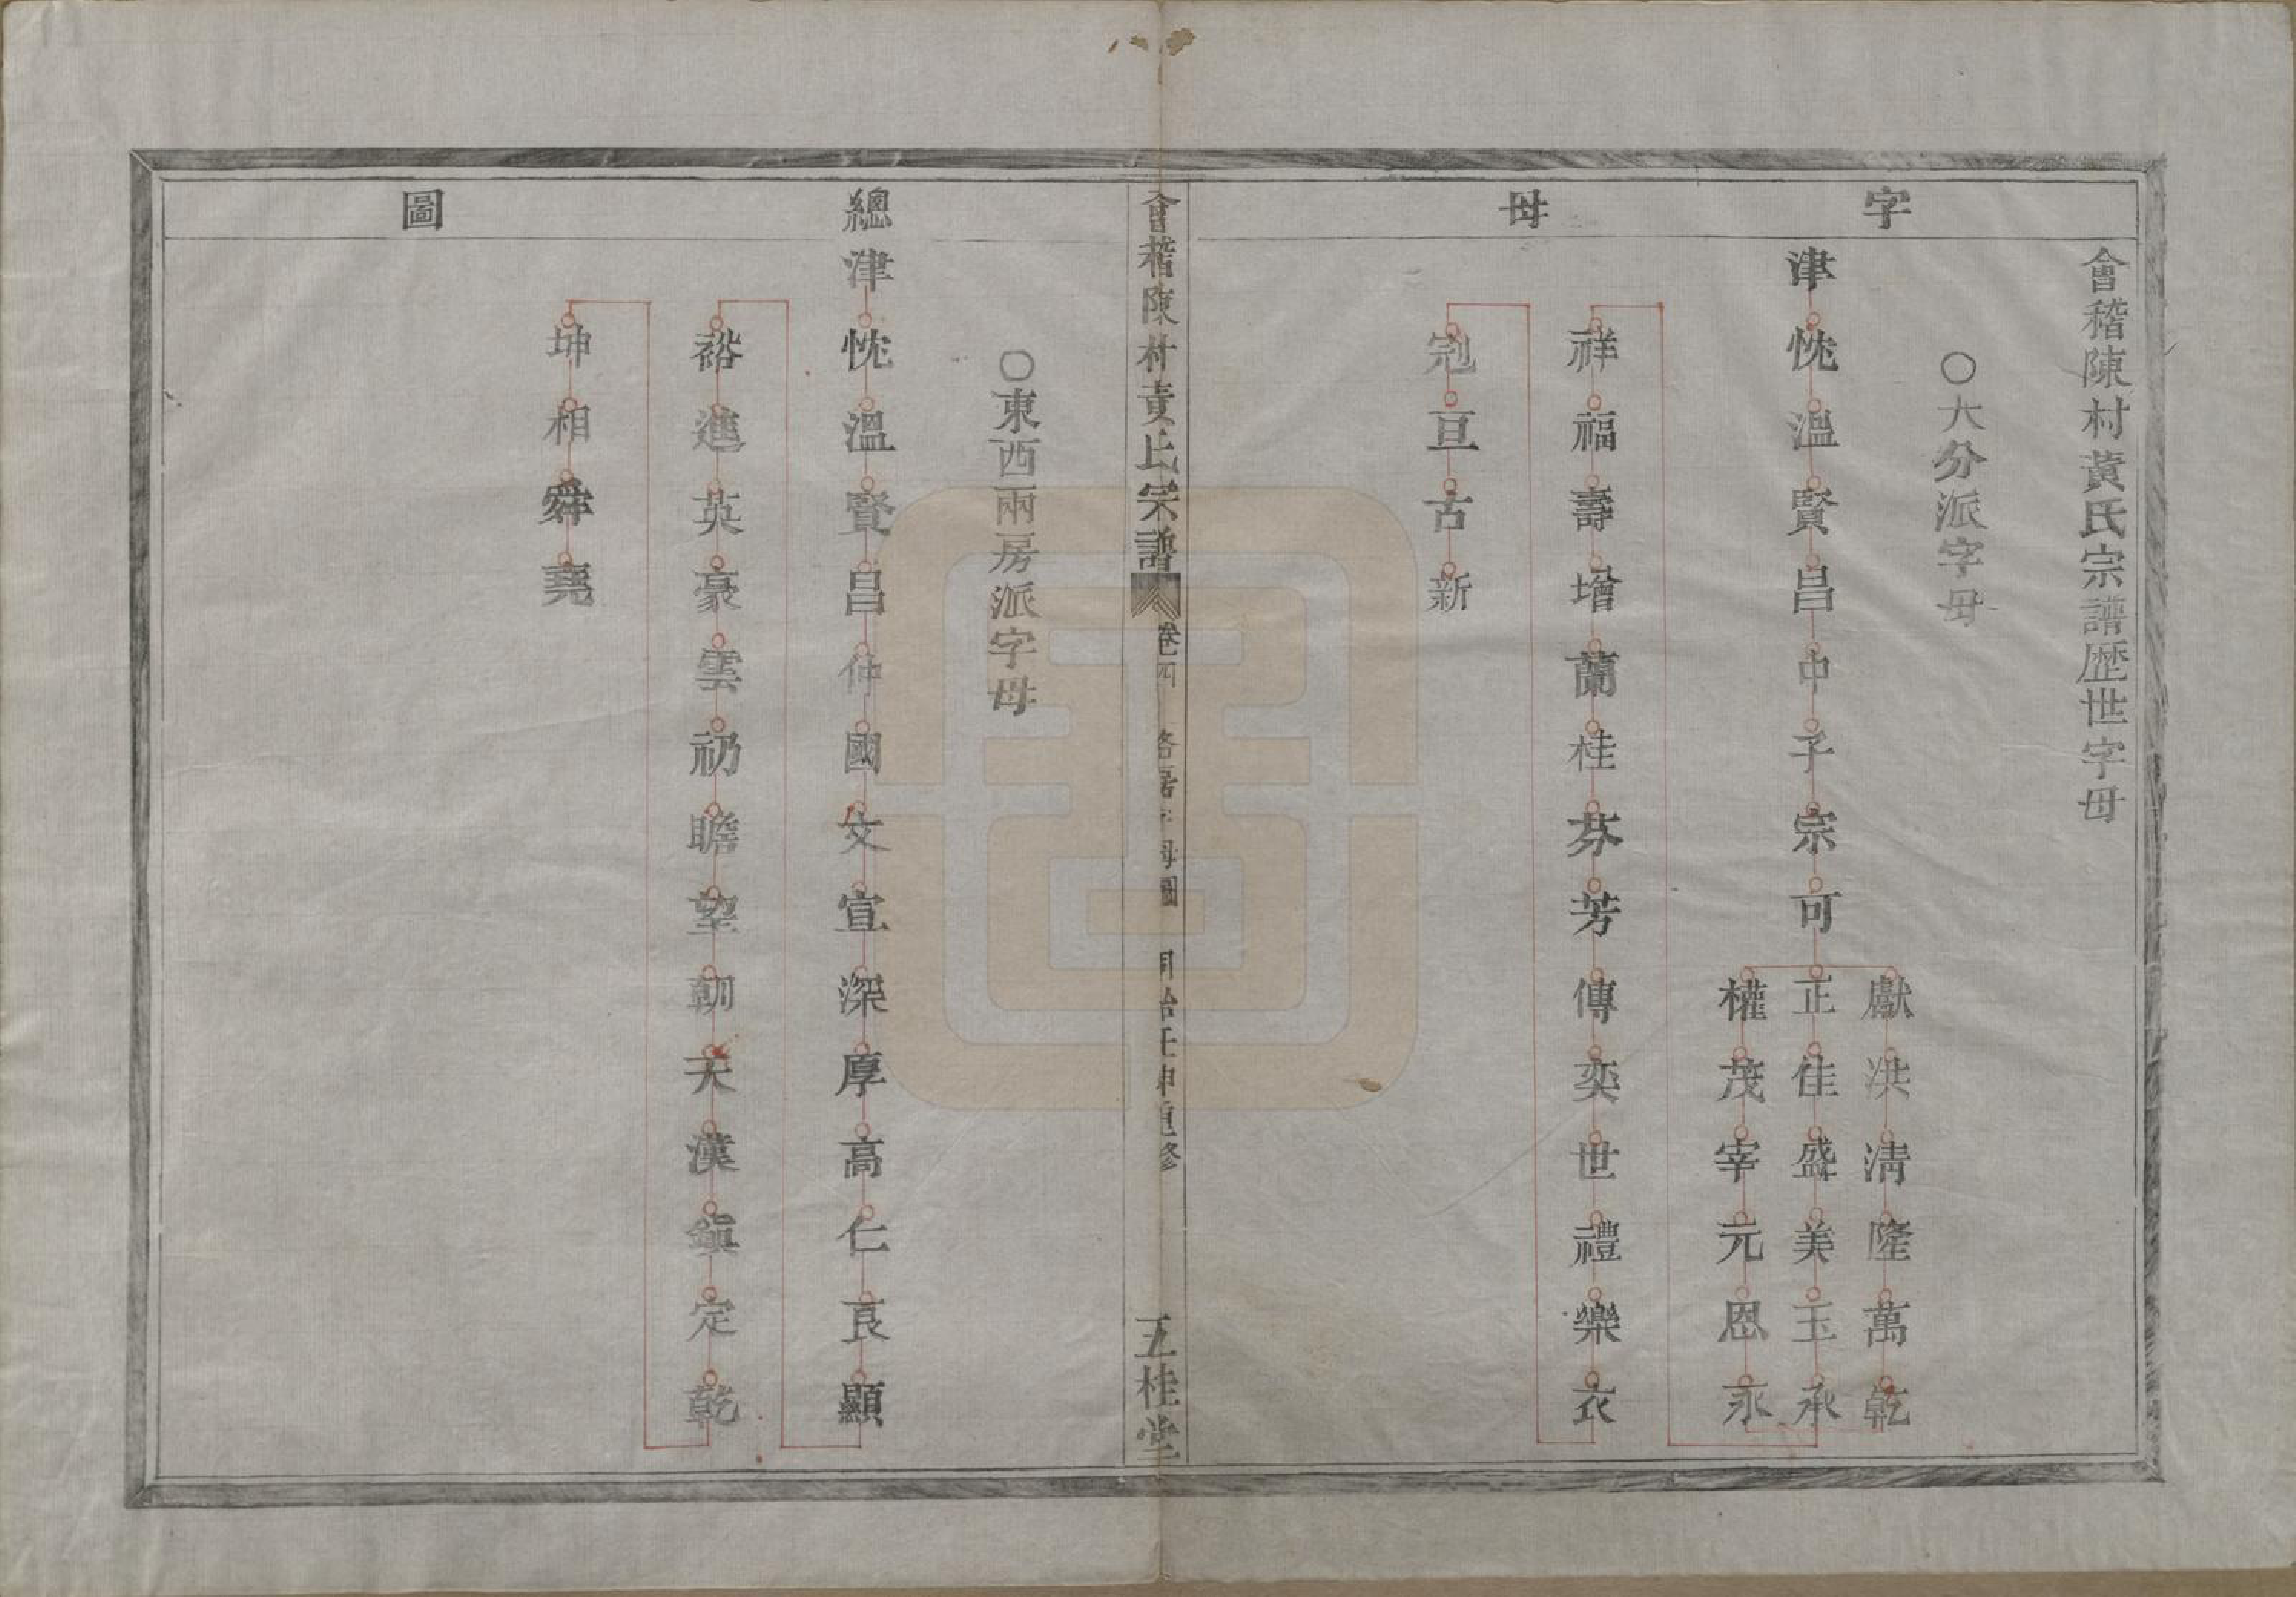 字母
會稽陳村黃氏宗譜歴世字母
〇大分派字母
津忱溫賢昌中子宗可
獻洪淸隆萬乾
正佳盛美玉承
權茂宰元恩永
祥福壽增蘭桂芬芳傳奕世禮樂衣
冠亘古新
會稽陳村黃氏宗譜 卷四 各房字母圖 同治壬申重修 五桂堂
總圖
〇東西兩房派字母
津忱溫賢昌仲國文宣深厚高仁良顯
裕進英豪雲礽瞻望朝天漢鎭定乾
坤相舜堯